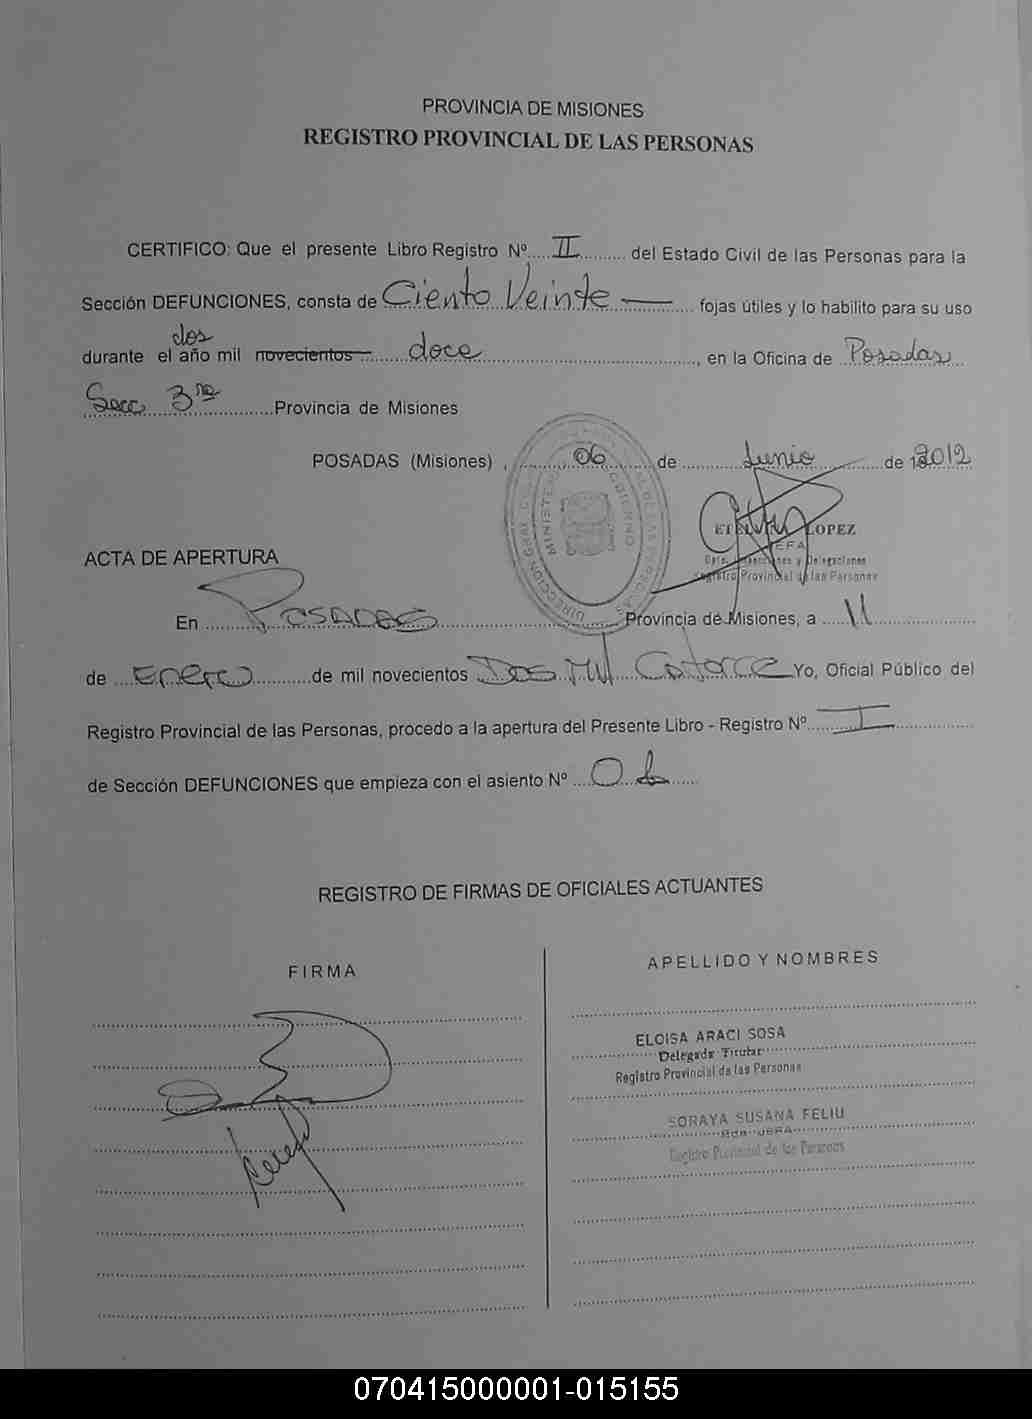 PROVINCIA DE MISIONES
REGISTRO PROVINCIAL DE LAS PERSONAS
CERTIFICO: Que el presente Libro Registro Nº II del Estado Civil de las Personas para la
Sección DEFUNCIONES, consta de Ciento Veinte — fojas útiles y lo habilito para su uso
dos
durante el año mil novecientos doce, en la Oficina de Posadas
Secc 3ra Provincia de Misiones
POSADAS (Misiones), 06 de Junio de 2012
LOPEZ
JEFA
Dpto. Inspecciones y Delegaciones
Registro Provincial de las Personas
ACTA DE APERTURA
En POSADAS Provincia de Misiones, a 11
de Enero de mil novecientos Dos Mil Catorce Yo, Oficial Público del
Registro Provincial de las Personas, procedo a la apertura del Presente Libro - Registro Nº I
de Sección DEFUNCIONES que empieza con el asiento Nº 01
REGISTRO DE FIRMAS DE OFICIALES ACTUANTES
FIRMA
APELLIDO Y NOMBRES
ELOISA ARACI SOSA
Delegada Titular
Registro Provincial de las Personas
SORAYA SUSANA FELIU
JEFA
Registro Provincial de las Personas
070415000001-015155